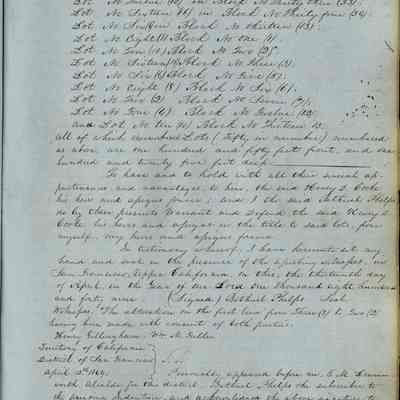 Lot No Twelve (12) in Block No Thirty three (33)
Lot No Sixteen (16) in Block No Thirty four (34)
Lot No in Block No Thirteen (13)
Lot No Eight (8) Block No One (1)
Lot No Block No Two (2)
Lot No Sixteen (16) Block No Three (3)
Lot No Six (6) Block No Five (5)
Lot No Eight (8) Block No Six (6)
Lot No Two (2) Block No Seven (7)
Lot No Four (4) Block No Twelve (12)
and Lot No Ten (10) Block No Thirteen 13
All of which Lots (Fifty in number) numbered
as above are one hundred and fifty feet front, and one
hundred and twenty five feet deep
To have and to hold with all their several ap-
purtenances and advantages to him, the said Henry D. Cooke
his heirs and assigns forever; and I the said Bethuel Phelps
do by these presents Warrant and Defend the said Henry D.
Cooke his heirs and assigns in the title to said lots, for
myself, my heirs and assigns forever
In testimony whereof, I have hereunto set my
hand and seal in the presence of the witnesses, in
San Francisco, Upper California, on this, the thirteenth day
of April, in the year of our Lord One Thousand eight hundred
and forty nine (Signed) Bethuel Phelps Seal
Witnesses. The alteration on the first line from Three (3) to Two (2)
having been made with consent of both parties.
Henry Gillingham, Wm M. Fuller
Territory of California
District of San Francisco
April 1849. Personally appeared before me, E. H. Harrison
Alcalde for the district, Bethuel Phelps the subscriber to
the Indenture and acknowledged the above